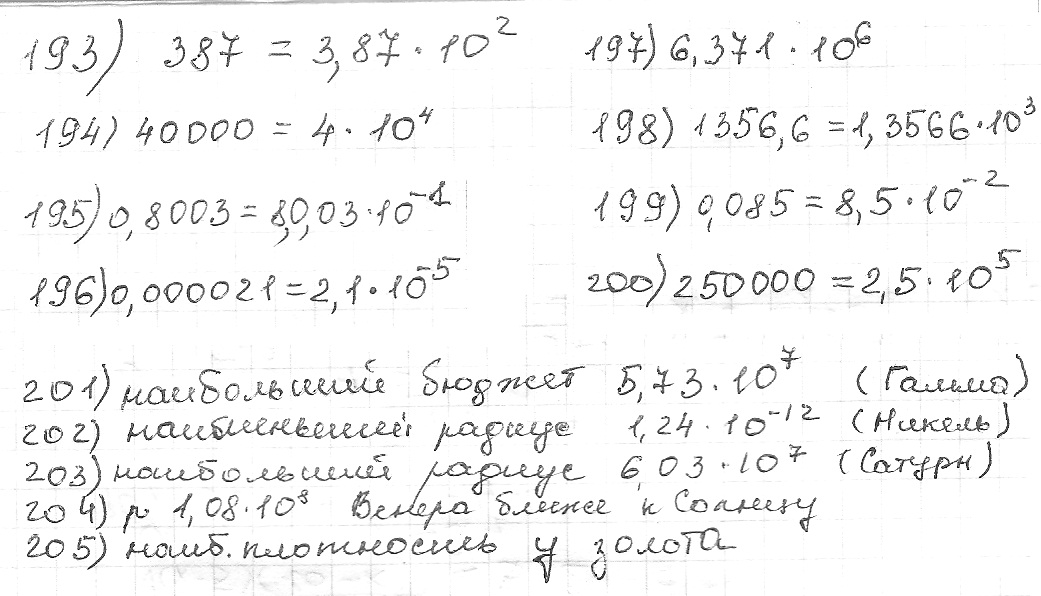 193) 387 = 3,87 · 10²
194) 40000 = 4 · 10⁴
195) 0,8003 = 8,003 · 10⁻¹
196) 0,000021 = 2,1 · 10⁻⁵
197) 6,371 · 10⁶
198) 1356,6 = 1,3566 · 10³
199) 0,085 = 8,5 · 10⁻²
200) 250000 = 2,5 · 10⁵
201) наибольший бюджет 5,73 · 10⁷ (Гамма)
202) наименьший радиус 1,24 · 10⁻¹² (Никель)
203) наибольший радиус 6,03 · 10⁷ (Сатурн)
204) р 1,08 · 10⁸ Венера ближе к Солнцу
205) наиб. плотность у золота